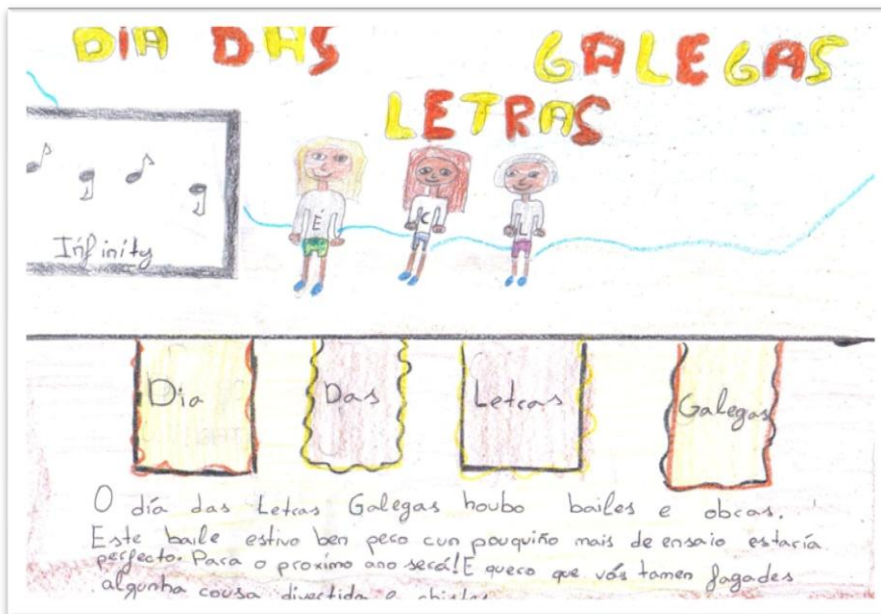 DIA DAS GALEGAS
LETRAS
Infinity
É
C
L
Dia
Das
Letras
Galegas
O día das Letras Galegas houbo bailes e obras.
Este baile estivo ben pero cun pouquiño mais de ensaio estaría
perfecto. Para o proximo ano será! E quero que vós tamen fagades
algunha cousa divertida e chistes